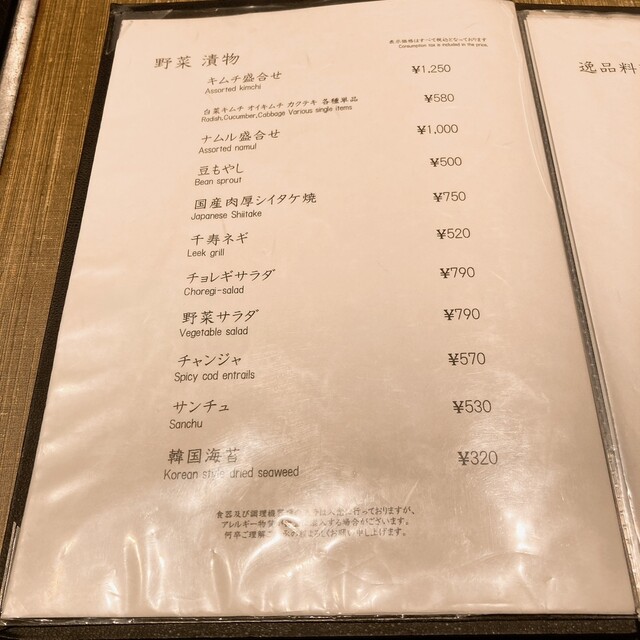 表示価格はすべて税込となっております
Consumption tax is included in the price.
野菜 漬物
キムチ盛合せ ¥1,250
Assorted kimchi
白菜キムチ オイキムチ カクテキ 各種単品 ¥580
Radish,Cucumber,Cabbage Various single items
ナムル盛合せ ¥1,000
Assorted namul
豆もやし ¥500
Bean sprout
国産肉厚シイタケ焼 ¥750
Japanese Shiitake
千寿ネギ ¥520
Leek grill
チョレギサラダ ¥790
Choregi-salad
野菜サラダ ¥790
Vegetable salad
チャンジャ ¥570
Spicy cod entrails
サンチュ ¥530
Sanchu
韓国海苔 ¥320
Korean style dried seaweed
食器及び調理機器 は入念に行っておりますが、
アレルギー物質 混入する場合がございます。
何卒ご理解ご よろしくお願い申し上げます。
逸品料